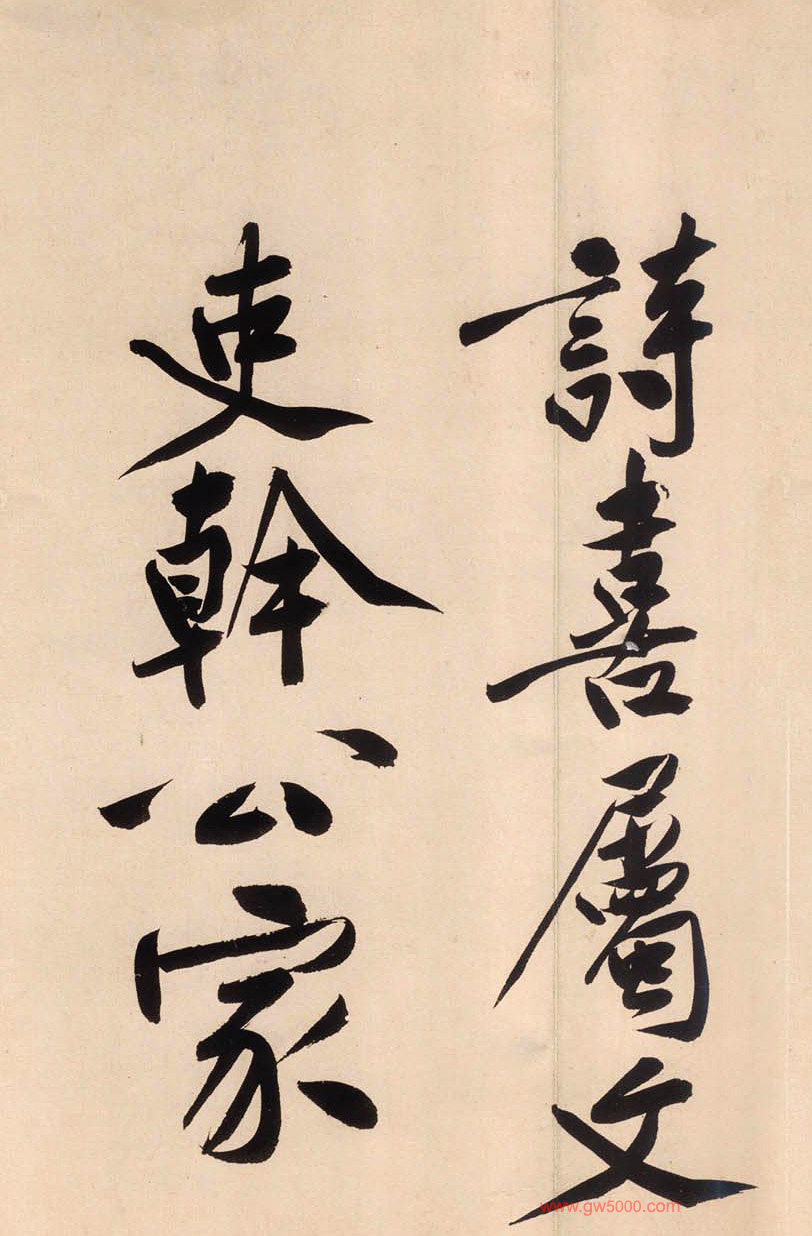 詩喜屬文
吏幹公家
www.gw5000.com